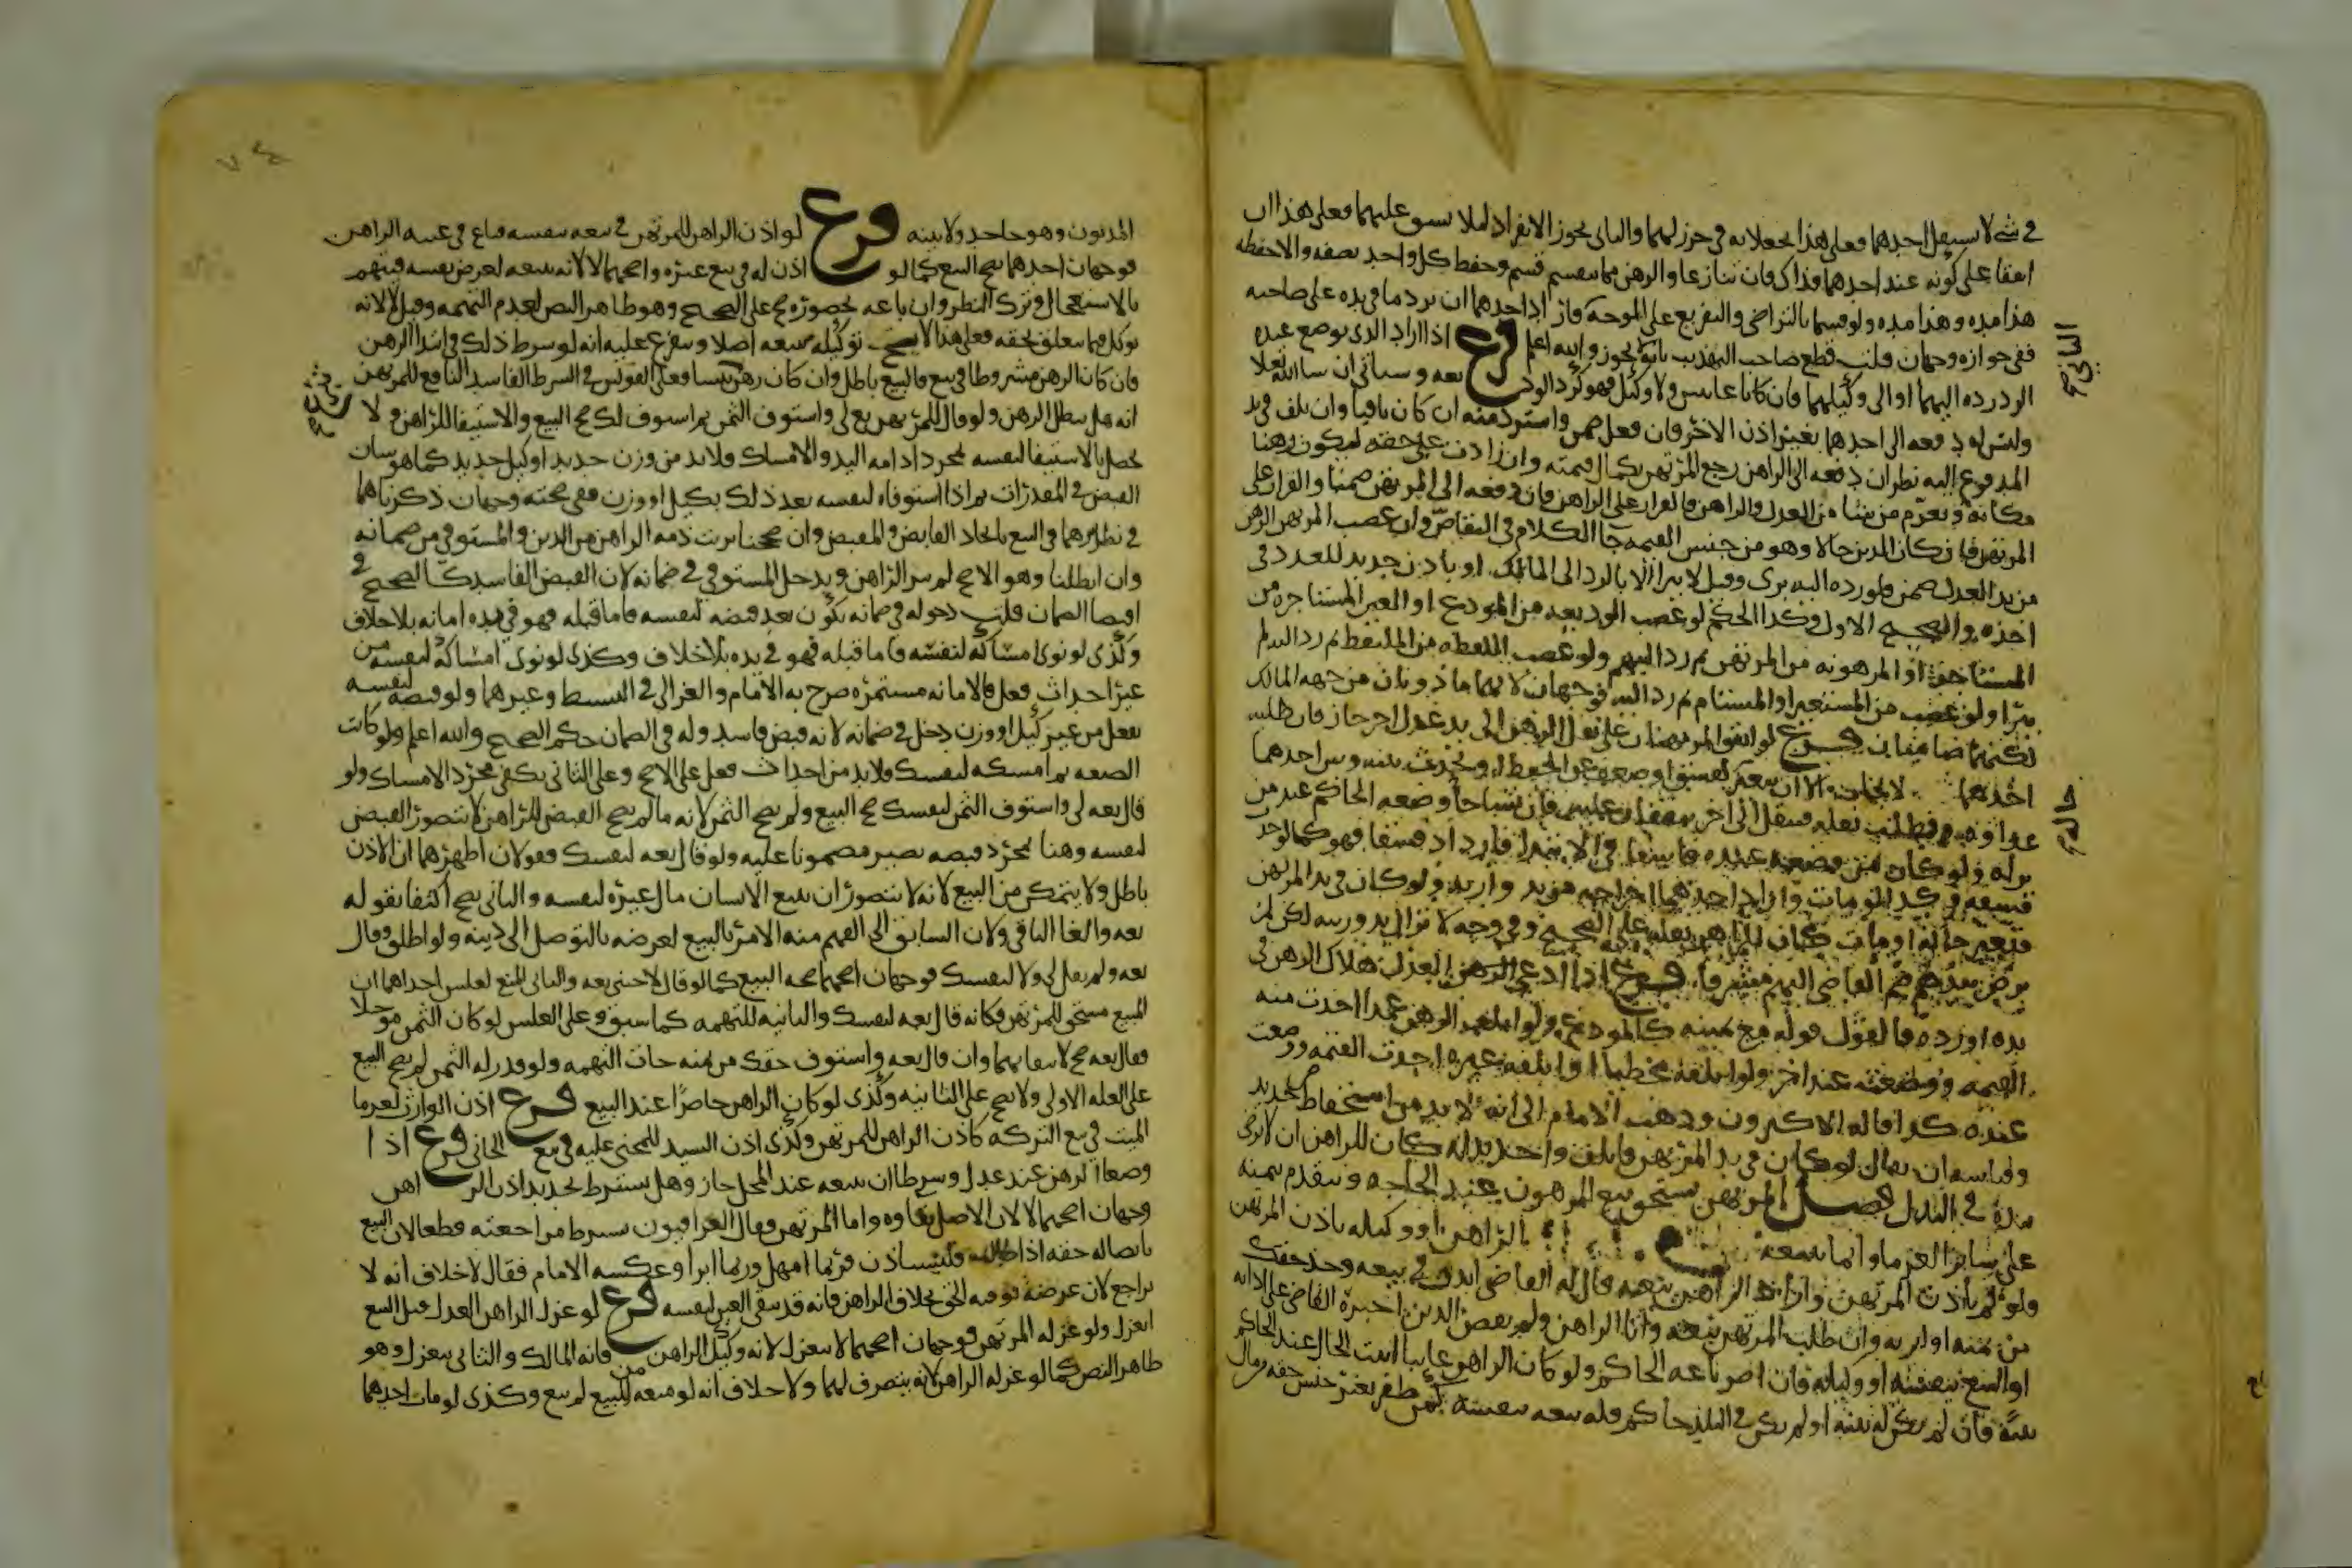 في شي لا سبيل احدهما فعلى هذا يجعلانه في حرز لهما والثاني يجوز الانفراد لئلا يشق عليهما فعلى هذا ان
اتفقا على كونه عند احدهما فذاك فان تنازعا والرهن مما ينقسم قسم وحفظ كل واحد نصفه والا حفظه
هذا مدة وهذا مدة ولو قسما بالتراضي والتفريع على الموجه فاراد احدهما ان يرد ما في يده على صاحبه
ففي جوازه وجهان قلت قطع صاحب التهذيب بانه لا يجوز والله اعلم فرع اذا اراد الذي يوضع عنده
الرد رده اليهما او الى وكيلهما فان كانا غائبين ولا وكيل فهو كرد الوديعه وسياتي ان شا الله تعالى
وليس له دفعه الى احدهما بغير اذن الاخر فان فعل ضمن واسترد منه ان كان باقيا وان تلف في يد
المدفوع اليه نظر ان دفعه الى الراهن رجع المرتهن بكمال قيمته وان زادت على حقه ليكون رهنا
مكانه ويغرم من شا من العدل والراهن والقرار على الراهن فان دفعه الى المرتهن ضمنا والقرار على
المرتهن فان كان الدين حالا وهو من جنس القيمه جا الكلام في التقاص وان غصب المرتهن الرهن
من يد العدل ضمن فلو رده اليه برى وقيل لا يبرا الا بالرد الى المالك او باذن جديد للعدل في
اخذه والصحيح الاول وكذا الحكم لو غصب الوديعه من المودع او العين المستاجره من
المستاجر او المرهونه من المرتهن ثم رد اليهم ولو غصب اللقطه من الملتقط ثم رد اليه لم
يبرا ولو غصب من المستعير او المستام ثم رد اليه فوجهان لانهما ماذونان من جهه المالك
لكنهما ضامنان فرع لو اتفق المرتهنان على نقل الرهن الى يد عدل اخر جاز فان طلبه
احدهما لا يجاب الا ان يتغير بفسق او ضعف عن الحفظ او يحدث بينه وبين احدهما
عداوه فيطلب نقله فينقل الى اخر يتفقان عليه فان تشاحا وضعه الحاكم عند من
يراه ولو كان من وضعه عنده فاسقا في الابتدا فازداد فسقا فهو كما لو حدث
فسقه وكذا لو مات واراد احدهما اخراجه من يد وارثه ولو كان في يد المرتهن
فتغير حاله او مات كان للراهن نقله على الصحيح وفي وجه لا تزال يد ورثته لكن لم
يرض بيدهم ضم القاضي اليهم مشرفا فرع اذا ادعى العدل هلاك الرهن في
يده او رده فالقول قوله مع يمينه كالمودع ولو اتلف الرهن عمدا اخذت منه
القيمه ووضعت عند اخر ولو اتلفه مخطيا او اتلفه غيره اخذت القيمه ووضعت
عنده كذا قاله الاكثرون وذهب الامام الى انه لا بد من استحفاظ جديد
وقياسه ان يقال لو كان في يد المرتهن فاتلف واخذ بدله كان للراهن ان لا يرضى
بيده في البدل فصل المرتهن يستحق بيع المرهون عند الحاجه ويتقدم بثمنه
على ساير الغرما وانما يبيعه الراهن او وكيله باذن المرتهن
ولو لم ياذن المرتهن واراد الراهن بيعه قال له القاضي ايذن في بيعه وخذ حقك
من ثمنه او ابريه وان طلب المرتهن بيعه وابا الراهن ولم يقض الدين اجبره القاضي على ادايه
او البيع بنفسه او وكيله فان اصر باعه الحاكم ولو كان الراهن غايبا اثبت الحال عند الحاكم
فان لم يكن له بينه او لم يكن في البلد حاكم فله بيعه بنفسه كمن ظفر بغير جنس حقه من مال
المديون وهو جاحد ولا بينه فرع لو اذن الراهن للمرتهن في بيعه بنفسه فباع في غيبه الراهن
فوجهان احدهما يصح البيع كما لو اذن له في بيع غيره واصحهما لا لانه يبيعه لغرض نفسه فيتهم
بالاستعجال وترك النظر وان باعه بحضوره صح على الصحيح وهو ظاهر النص لعدم التهمه وقيل لا لانه
توكل فيما يتعلق بحقه فعلى هذا لا يصح توكيله ببيعه اصلا ويتفرع عليه انه لو شرط ذلك في ابتدا الرهن
فان كان الرهن مشروطا في بيع فالبيع باطل وان كان رهن تبرع فعلى القولين في الشرط الفاسد النافع للمرتهن
انه هل يبطل الرهن ولو قال للمرتهن بع لي واستوف الثمن ثم استوف لك صح البيع والاستيفا للراهن ولا
يحصل الاستيفا لنفسه بمجرد ادامه اليد والامساك فلا بد من وزن جديد او كيل جديد كما هو شان
القبض في المقدرات ثم اذا استوفاه لنفسه بعد ذلك بكيل او وزن ففي صحته وجهان ذكرناهما
في نظيرهما في البيع باتحاد القابض والمقبض وان صححنا برئت ذمه الراهن من الدين والمستوفي من ضمانه
وان ابطلنا وهو الاصح لم يبر الراهن ويدخل المستوفي في ضمانه لان القبض الفاسد كالصحيح في
اقتضا الضمان قلت دخوله في ضمانه يكون بعد قبضه لنفسه فاما قبله فهو في يده امانه بلا خلاف
وكذى لو نوى امساكه لنفسه فاما قبله فهو في يده بلا خلاف وكذى لو نوى امساكه لنفسه من
غير احداث فعل فالامانه مستمره صرح به الامام والغزالي في البسيط وغيرهما ولو قبضه لنفسه
بفعل من غير كيل او وزن دخل في ضمانه لانه قبض فاسد وله في الضمان حكم الصحيح والله اعلم ولو كانت
الصيغه ثم امسكه لنفسك فلا بد من احداث فعل على الاصح وعلى الثاني يكفي مجرد الامساك ولو
قال بعه لي واستوف الثمن لنفسك صح البيع ولم يصح الثمن لانه ما لم يصح القبض للراهن لا يتصور القبض
لنفسه وهنا بمجرد قبضه يصير مضمونا عليه ولو قال بعه لنفسك فقولان اظهرهما ان الاذن
باطل ولا يتمكن من البيع لانه لا يتصور ان يبيع الانسان مال غيره لنفسه والثاني يصح اكتفا بقوله
بعه والغا الباقي ولان السابق الى الفهم منه الامر بالبيع لغرضه بالتوصل الى دينه ولو اطلق وقال
بعه ولم يقل لي ولا لنفسك فوجهان اصحهما صحه البيع كما لو قال لاجنبي بعه والثاني المنع لعلتين احداهما ان
المبيع مستحق للمرتهن فكانه قال بعه لنفسك والثانيه للتهمه كما سبق وعلى العلتين لو كان الثمن مؤجلا
فقال بعه صح لانتفايهما وان قال بعه واستوف حقك من ثمنه جات التهمه ولو قدر له الثمن لم يصح البيع
على العله الاولى ولا يصح على الثانيه وكذى لو كان الراهن حاضرا عند البيع فرع اذن الوارث لغرما
الميت في بيع التركه كاذن الراهن للمرتهن وكذى اذن السيد للمجني عليه في بيع الجاني فرع اذا
وضعا الرهن عند عدل وشرطا ان يبيعه عند المحل جاز وهل يشترط تجديد اذن الراهن
وجهان اصحهما لا لان الاصل بقاوه واما المرتهن فقال العراقيون يشترط مراجعته قطعا لان البيع
بايصاله حقه اذا طالبه فليستاذن فربما امهل وربما ابرا وعكسه الامام فقال لا خلاف انه لا
يراجع لان غرضه توفيه الحق بخلاف الراهن فانه قد يبقي العين لنفسه فرع لو عزل الراهن العدل قبل البيع
انعزل ولو عزله المرتهن فوجهان اصحهما لا ينعزل لانه وكيل الراهن فانه المالك والثاني ينعزل وهو
ظاهر النص كما لو عزله الراهن لانه يتصرف لهما ولا خلاف انه لو منعه من البيع لم يبع وكذى لو مات احدهما